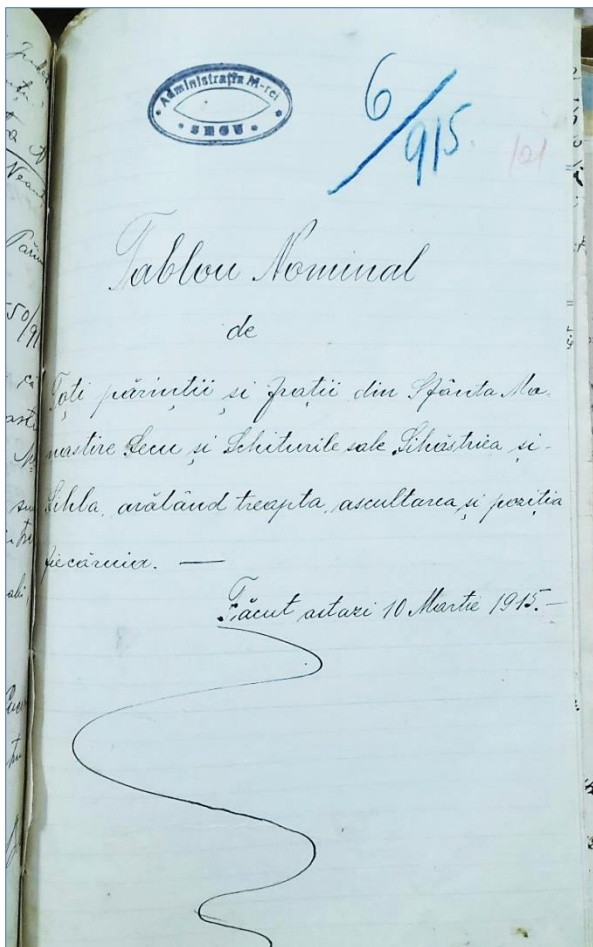 Administrația M-rei
SECU
6/915
101
Tablou Nominal
de
Toți părinții și frații din Sfânta Mo-
nastire Secu și Schiturile sale Sihăstriea și
Sihla, arătând treapta, ascultarea, și poziția
fiecăruia. —
Făcut astazi 10 Martie 1915. —